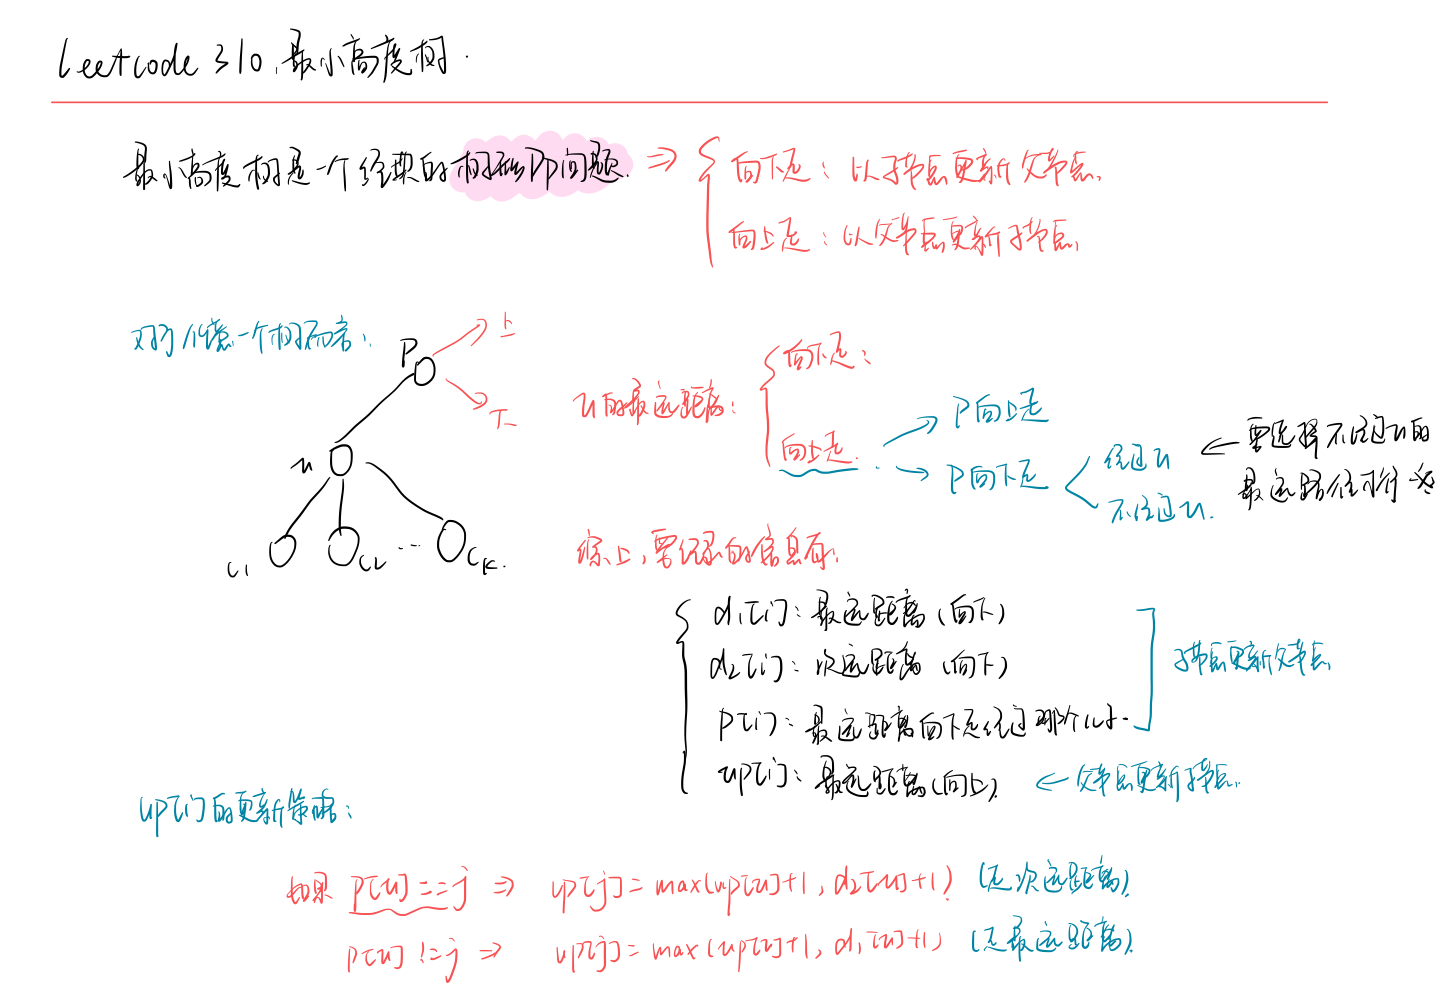 leetcode 310.最小高度树.
最小高度树是一个经典的树形Dp问题. ⇒
向下走: 以子节点更新父节点.
向上走: 以父节点更新子节点.
对于任意一个树而言:
P
上
下
u
c1 c2 ... cK.
u的最远距离:
向下走:
向上走.
P向上走
P向下走
经过u
不经过u.
← 要选择不经过u的
最远路径进行
综上,要记录的信息有:
d1[i]: 最远距离(向下)
d2[i]: 次远距离(向下)
p[i]: 最远距离向下走经过哪个儿子.
子节点更新父节点
up[i]: 最远距离(向上). ← 父节点更新子节点.
up[i]的更新策略:
如果 p[u]==j ⇒ up[j]=max(up[u]+1, d2[u]+1) (走次远距离).
p[u] != j ⇒ up[j]=max(up[u]+1, d1[u]+1) (走最远距离).